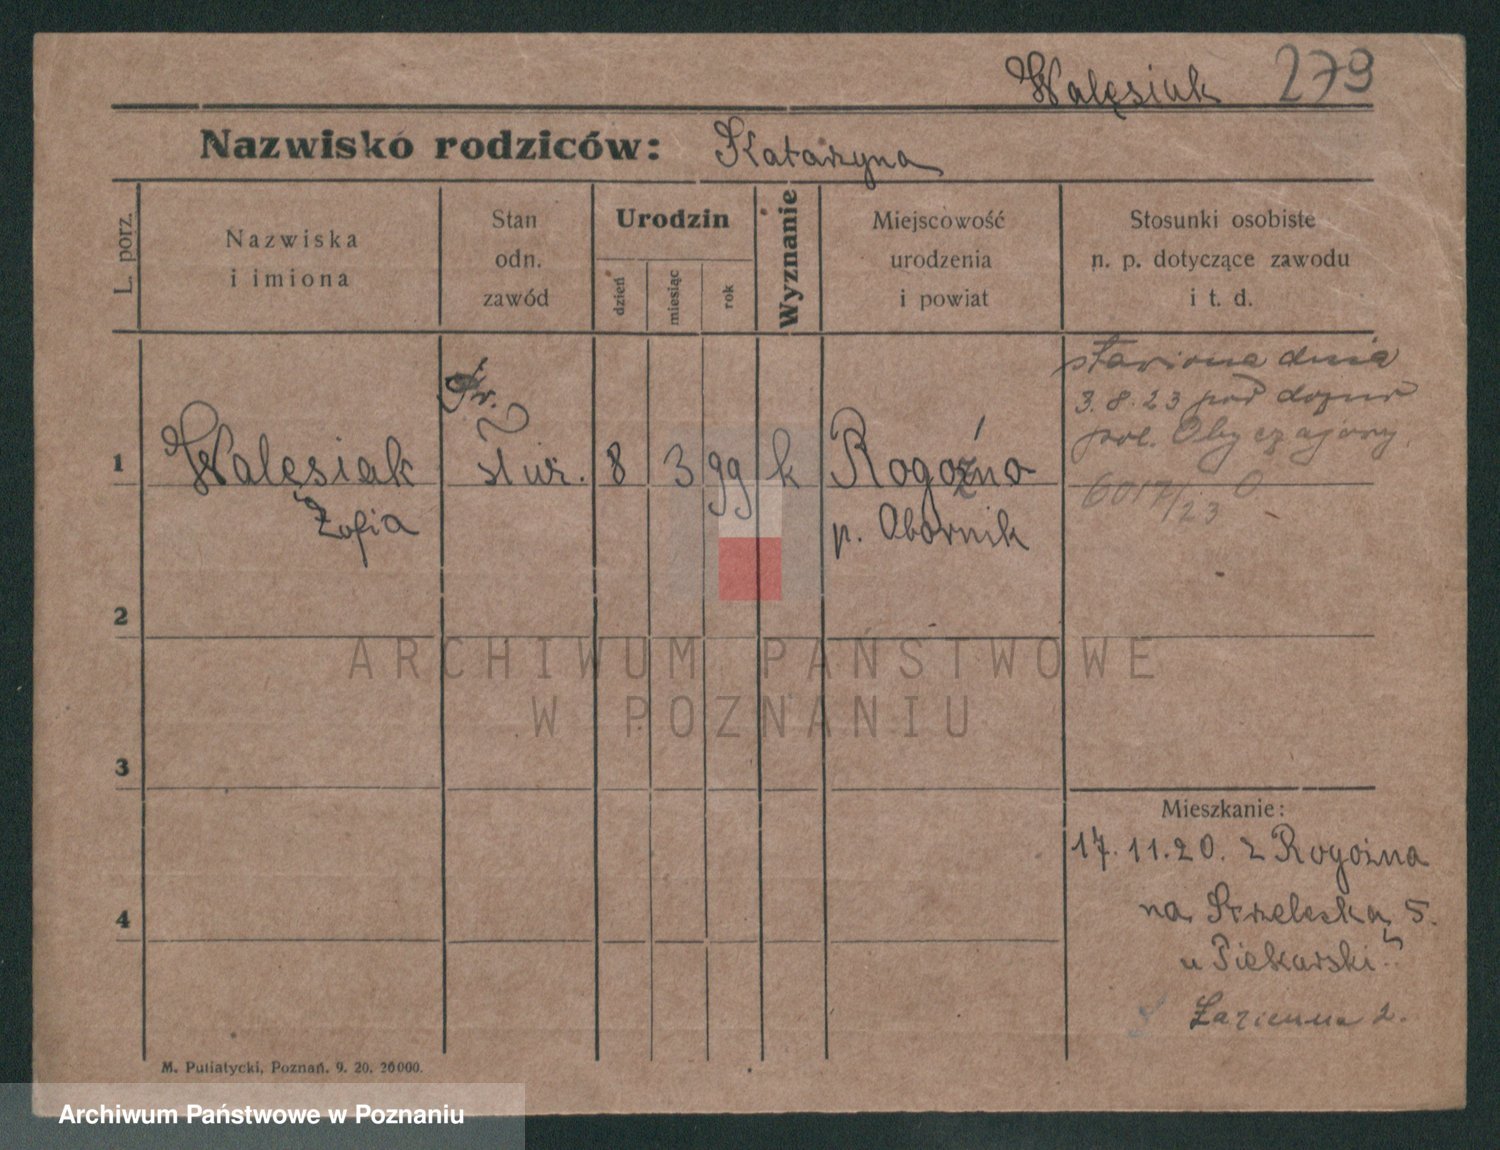 Walęsiak 279
Nazwisko rodziców: Katarzyna
L. porz.
Nazwiska
i imiona
Stan
odn.
zawód
Urodzin
dzień
miesiąc
rok
Wyznanie
Miejscowość
urodzenia
i powiat
Stosunki osobiste
n. p. dotyczące zawodu
i t. d.
1
Walęsiak
Zofia
służ.
8 3 99 k
Rogoźno
p. Obornik
stawiona dnia
3. 8. 23 pod dozór
pol. Obyczajowy.
6017/23
2
3
4
Mieszkanie:
17. 11. 20. z Rogoźna
na Strzelecką 5.
u Piekarski
Łazienna 2.
M. Putiatycki, Poznań. 9. 20. 20000.
ARCHIWUM PAŃSTWOWE
W POZNANIU
Archiwum Państwowe w Poznaniu